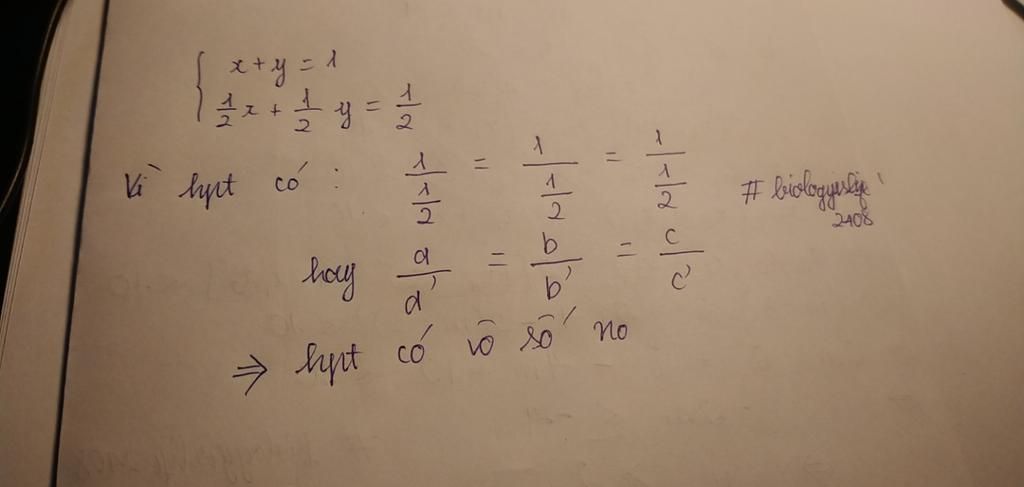 { x + y = 1
1/2 x + 1/2 y = 1/2
Vì hpt có : 1/(1/2) = 1/(1/2) = 1/(1/2)
# biologyislife
2408
hay a/a' = b/b' = c/c'
⇒ hpt có vô số no